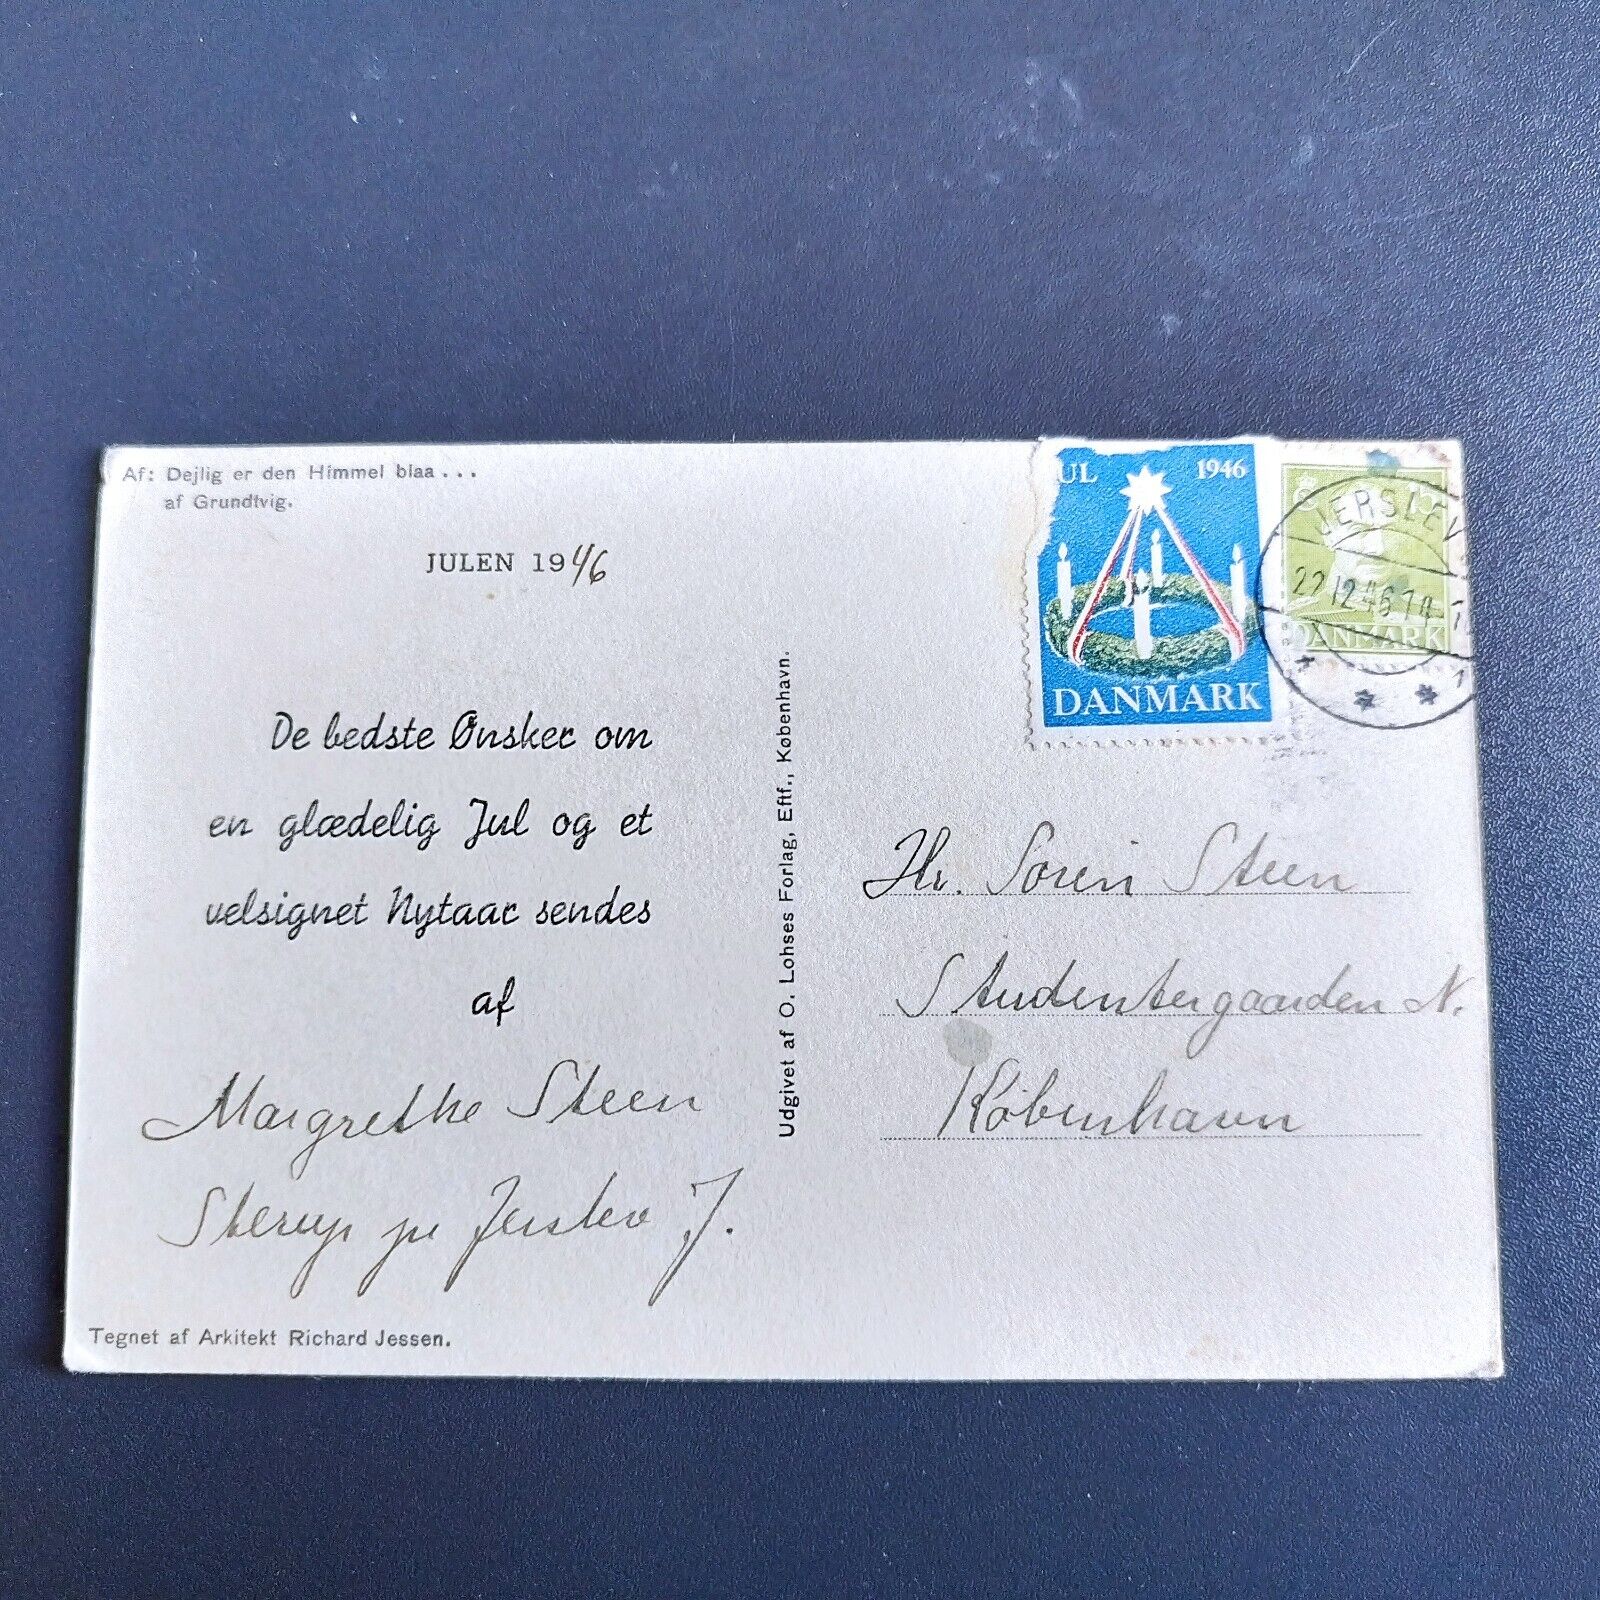 Af: Dejlig er den Himmel blaa...
af Grundtvig.
JULEN 1946
De bedste Ønsker om
en glædelig Jul og et
velsignet Nytaar sendes
af
Margrethe Steen
Sterup pr Jerslev J.
Tegnet af Arkitekt Richard Jessen.
Udgivet af O. Lohses Forlag, Eftf., København.
UL 1946
DANMARK
JERSLEV
22.12.46
DANMARK
Hr. Søren Steen
Studentergaarden N.
København